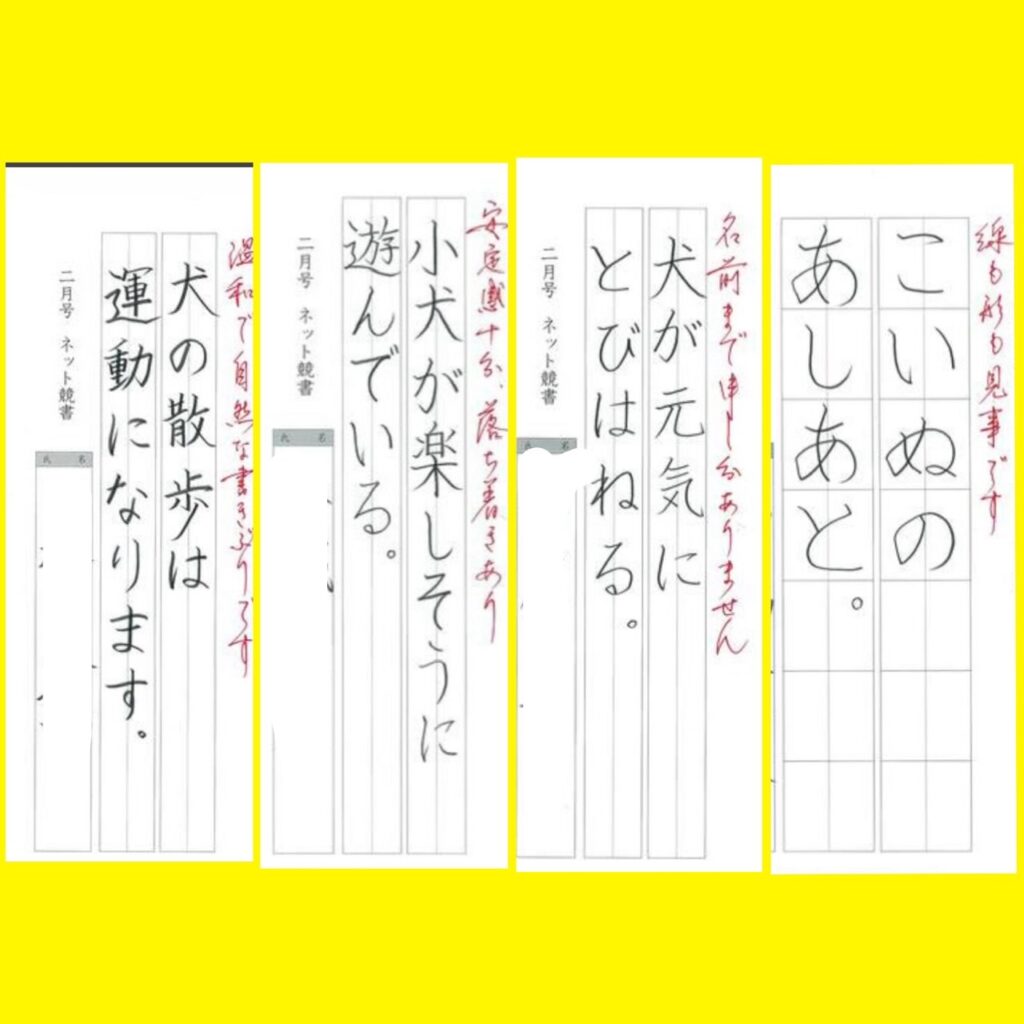 線も形も見事です
こいぬの
あしあと。
名前まで申し分ありません
犬が元気に
とびはねる。
二月号 ネット競書
氏 名
安定感十分、落ち着きあり
小犬が楽しそうに
遊んでいる。
二月号 ネット競書
氏 名
温和で自然な書きぶりです
犬の散歩は
運動になります。
二月号 ネット競書
氏 名